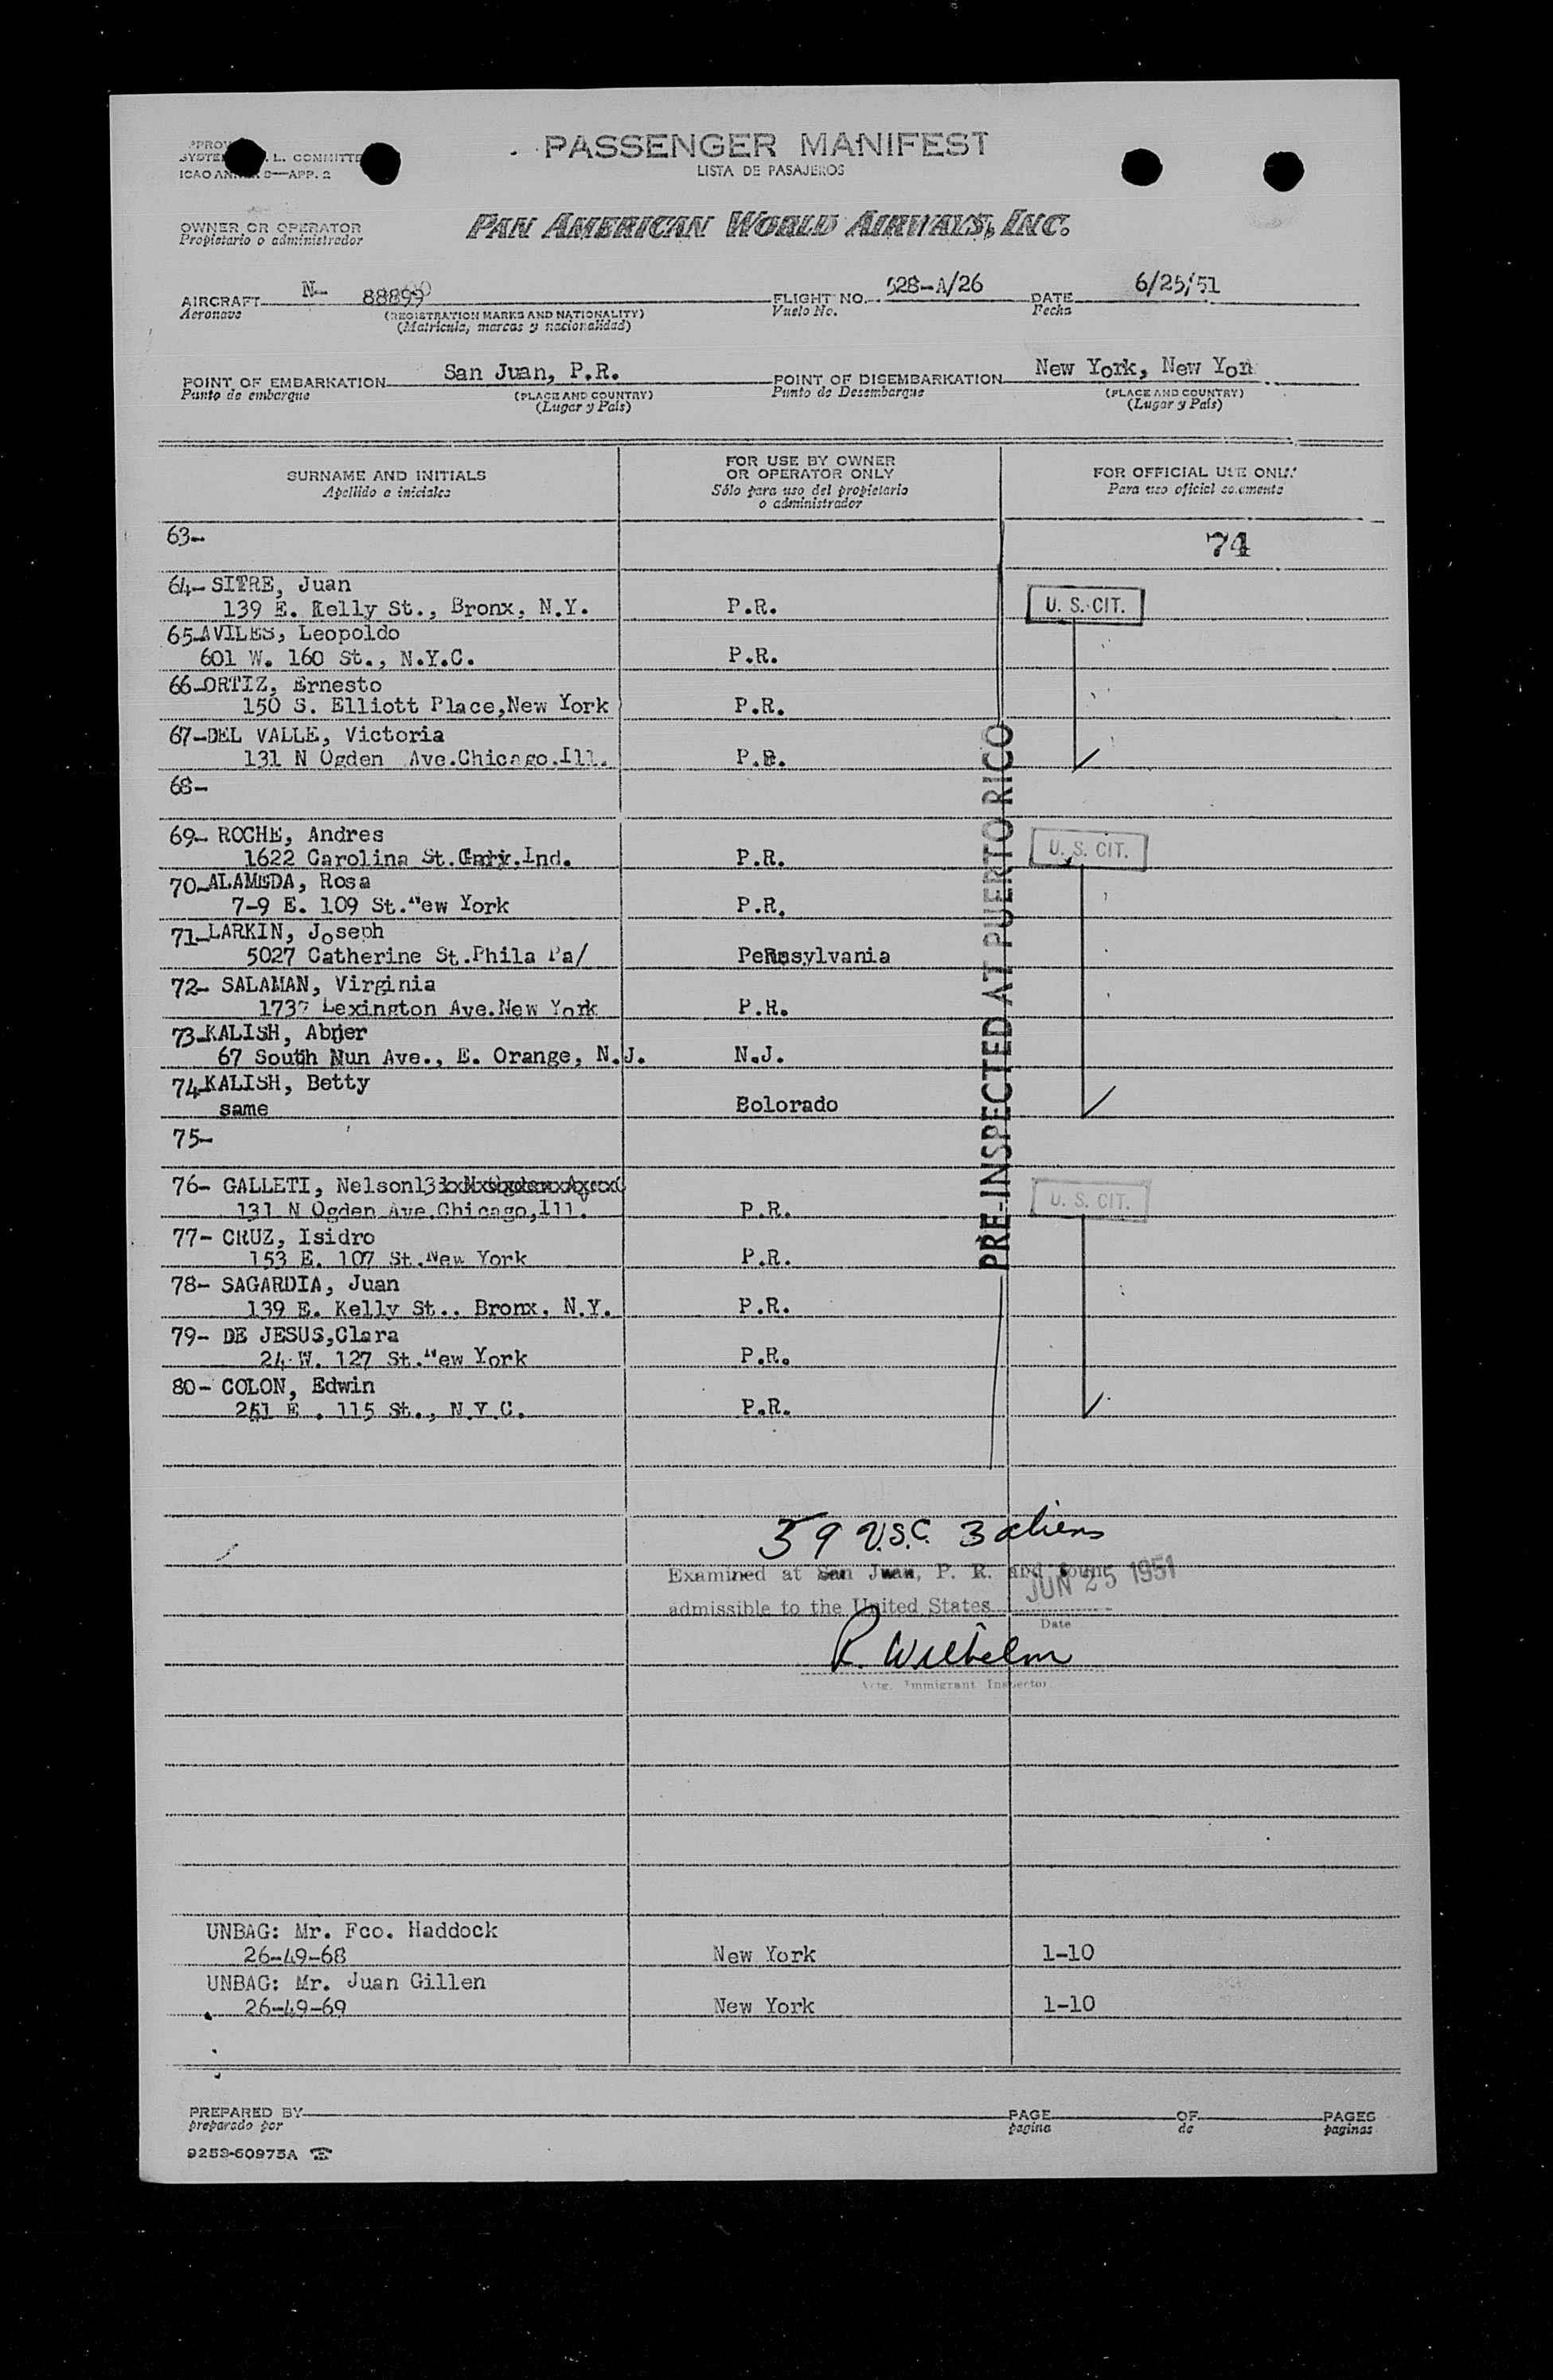 PASSENGER MANIFEST
LISTA DE PASAJEROS
L. COMMITTE
ICAO APP. 2
OWNER OR OPERATOR
Propietario o administrador
PAN AMERICAN WORLD AIRWAYS, INC.
AIRCRAFT N- FLIGHT NO. 528-A/26 DATE 6/25/51
Aeronave (REGISTRATION MARKS AND NATIONALITY) Vuelo No. Fecha
(Matricula, marcas y nacionalidad)
POINT OF EMBARKATION San Juan, P.R. POINT OF DISEMBARKATION New York, New Yor
Punto de embarque (PLACE AND COUNTRY) Punto de Desembarque (PLACE AND COUNTRY)
(Lugar y País) (Lugar y País)
SURNAME AND INITIALS FOR USE BY OWNER OR OPERATOR ONLY FOR OFFICIAL USE ONLY
Apellido e iniciales Sólo para uso del propietario o administrador Para uso oficial solamente
63- 74
64- SITRE, Juan
139 E. Kelly St., Bronx, N.Y. P.R. U. S. CIT.
65-AVILES, Leopoldo
601 W. 160 St., N.Y.C. P.R.
66-ORTIZ, Ernesto
150 S. Elliott Place,New York P.R.
67-DEL VALLE, Victoria
131 N Ogden Ave.Chicago.Ill. P.R.
68-
69- ROCHE, Andres
1622 Carolina St. Gary.Ind. P.R. U. S. CIT.
70-ALAMEDA, Rosa
7-9 E. 109 St.New York P.R.
71-LARKIN, Joseph
5027 Catherine St.Phila Pa/ Pennsylvania
72- SALAMAN, Virginia
1737 Lexington Ave.New York P.R.
73-KALISH, Abner
67 South Mun Ave., E. Orange, N.J. N.J.
74-KALISH, Betty
same Colorado
75-
76- GALLETI, Nelson
131 N Ogden Ave.Chicago,Ill. P.R. U. S. CIT.
77- CRUZ, Isidro
153 E. 107 St.New York P.R.
78- SAGARDIA, Juan
139 E. Kelly St., Bronx, N.Y. P.R.
79- DE JESUS,Clara
24 W. 127 St.New York P.R.
80- COLON, Edwin
251 E . 115 St., N.Y.C. P.R.
PRE-INSPECTED AT PUERTO RICO
59 U.S.C. 3 aliens
Examined at San Juan, P. R. and found
admissible to the United States JUN 25 1951
Date
R. Wilhelm
Actg. Immigrant Inspector
UNBAG: Mr. Fco. Haddock
26-49-68 New York 1-10
UNBAG: Mr. Juan Gillen
26-49-69 New York 1-10
PREPARED BY PAGE OF PAGES
preparado por pagina de paginas
9253-60975A